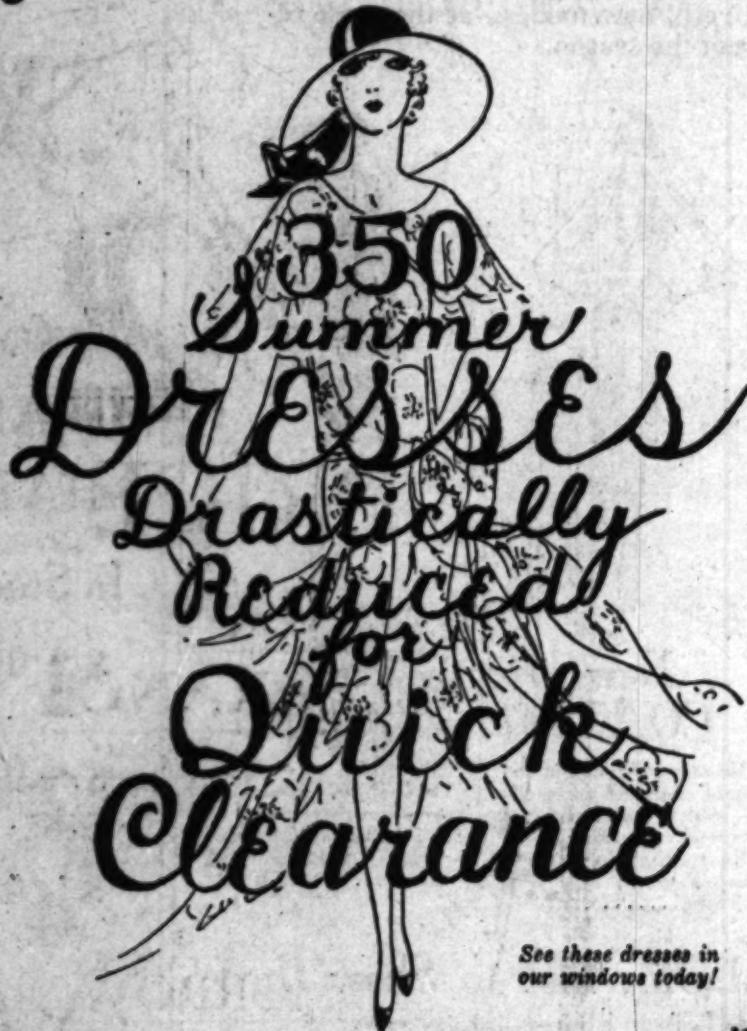 350
Summer
Dresses
Drastically
Reduced
for
Quick
Clearance
See these dresses in
our windows today!